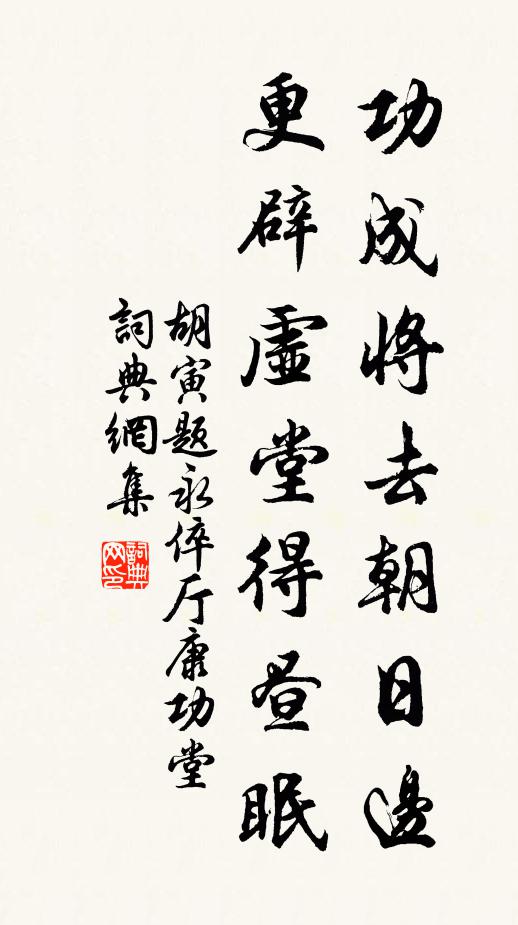 功成將去朝日邊
更辟虛堂得昼眠
胡寅题永倅厅康功堂
詞典網集
詞典网印